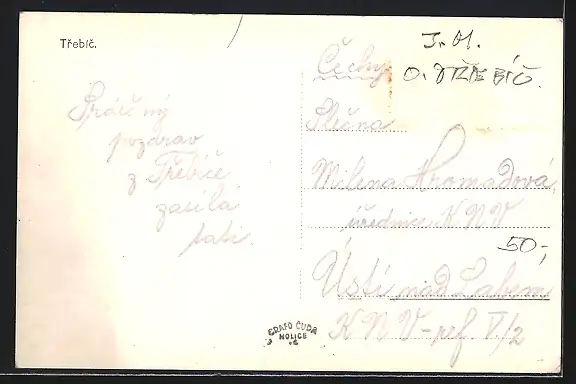 Třebíč.
J. M.
O. TŘEBÍČ.
Čechy
Slečna
Milena Hromadová,
úřednice KNV
50,-
Ústí nad Labem
KNV - ref. V/2
Srdečný
pozdrav
z Třebíče
zasílá
tati.
GRAFO ČUDA
HOLICE